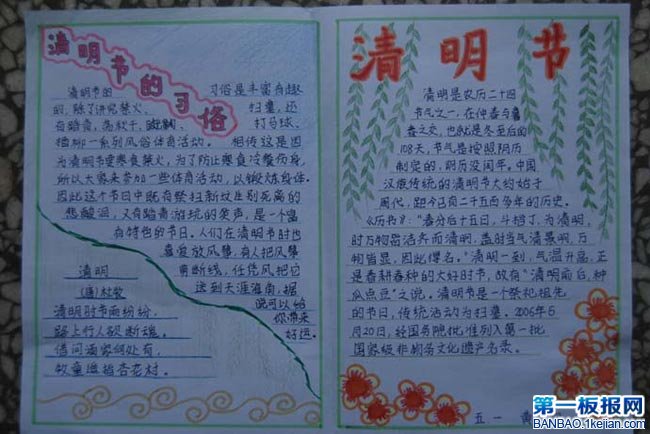 清明节的习俗
清明节的 习俗是丰富有趣
的,除了讲究禁火、 扫墓,还
有踏青、荡秋千、蹴鞠、 打马球、
插柳一系列风俗体育活动。 相传这是因
为清明节要寒食禁火,为了防止寒食冷餐伤身,
所以大家来参加一些体育活动,以锻炼身体。
因此这个节日中既有祭扫新坟生别死离的
悲酸泪,又有踏青游玩的笑声,是一个富
有特色的节日。人们在清明节时也
喜爱放风筝,有人把风筝
剪断线,任凭风把它
送到天涯海角,据
说可以给
你带来
好运。
清明
(唐)杜牧
清明时节雨纷纷,
路上行人欲断魂。
借问酒家何处有,
牧童遥指杏花村。
清明节
清明是农历二十四
节气之一,在仲春与暮
春之交,也就是冬至后的
108天,节气是按照阳历
制定的,阴历没闰年。中国
汉族传统的清明节大约始于
周代,距今已有二千五百多年的历史。
《历书》:“春分后十五日,斗指丁,为清明,
时万物皆洁齐而清明,盖时当气清景明,万
物皆显,因此得名。”清明一到,气温升高,正
是春耕春种的大好时节,故有“清明前后,种
瓜点豆”之说。清明节是一个祭祀祖先
的节日,传统活动为扫墓。2006年5
月20日,经国务院批准列入第一批
国家级非物质文化遗产名录。
五一 黄
第一板报网
BANBAO.1kejian.com